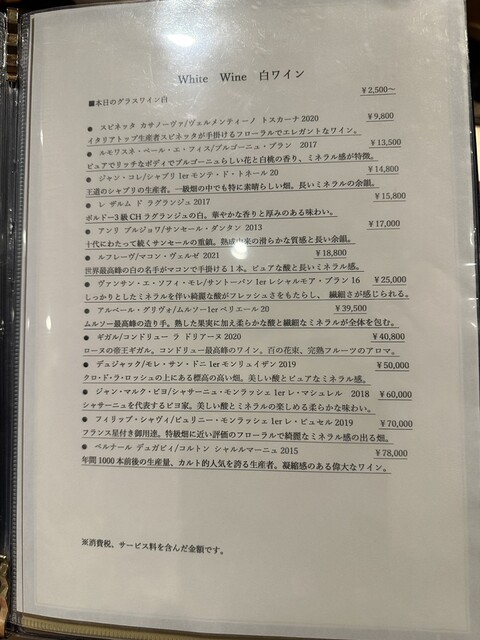 White Wine 白ワイン
■本日のグラスワイン白 ¥2,500～
● スピネッタ カサノーヴァ/ヴェルメンティーノ トスカーナ 2020 ¥9,800
イタリアトップ生産者スピネッタが手掛けるフローラルでエレガントなワイン。
● ルモワスネ・ペール・エ・フィス/ブルゴーニュ・ブラン 2017 ¥13,500
ピュアでリッチなボディでブルゴーニュらしい花と白桃の香り、ミネラル感が特徴。
● ジャン・コレ/シャブリ 1er モンテ・ド・トネール 20 ¥14,800
王道のシャブリの生産者。一級畑の中でも特に素晴らしい畑。長いミネラルの余韻。
● レ ザルム ド ラグランジュ 2017 ¥15,800
ボルドー3 級 CH ラグランジュの白。華やかな香りと厚みのある味わい。
● アンリ ブルジョワ/サンセール・ダンタン 2013 ¥17,000
十代にわたって続くサンセールの重鎮。熟成由来の滑らかな質感と長い余韻。
● ルフレーヴ/マコン・ヴェルゼ 2021 ¥18,800
世界最高峰の白の名手がマコンで手掛ける 1 本。ピュアな酸と長いミネラル感。
● ヴァンサン・エ・ソフィ・モレ/サントーバン 1er レシャルモア・ブラン 16 ¥25,000
しっかりとしたミネラルを伴い綺麗な酸がフレッシュさをもたらし、 繊細さが感じられる。
● アルベール・グリヴォ/ムルソー1er ペリエール 20 ¥39,500
ムルソー最高峰の造り手。熟した果実に加え柔らかな酸と繊細なミネラルが全体を包む。
● ギガル/コンドリュー ラ ドリアーヌ 2020 ¥40,800
ローヌの帝王ギガル。コンドリュー最高峰のワイン。百の花束、完熟フルーツのアロマ。
● デュジャック/モレ・サン・ドニ 1er モンリュイザン 2019 ¥50,000
クロ・ド・ラ・ロッシュの上にある標高の高い畑。美しい酸とピュアなミネラル感。
● ジャン・マルク・ピヨ/シャサーニュ・モンラッシェ 1er レ・マシュレル 2018 ¥60,000
シャサーニュを代表するピヨ家。美しい酸とミネラルの楽しめる柔らかな味わい。
● フィリップ・シャヴィ/ピュリニー・モンラッシェ 1er レ・ピュセル 2019 ¥70,000
フランス星付き御用達。特級畑に近い評価のフローラルで綺麗なミネラル感の出る畑。
● ベルナール デュガピィ/コルトン シャルルマーニュ 2015 ¥78,000
年間 1000 本前後の生産量、カルト的人気を誇る生産者。凝縮感のある偉大なワイン。
※消費税、サービス料を含んだ金額です。